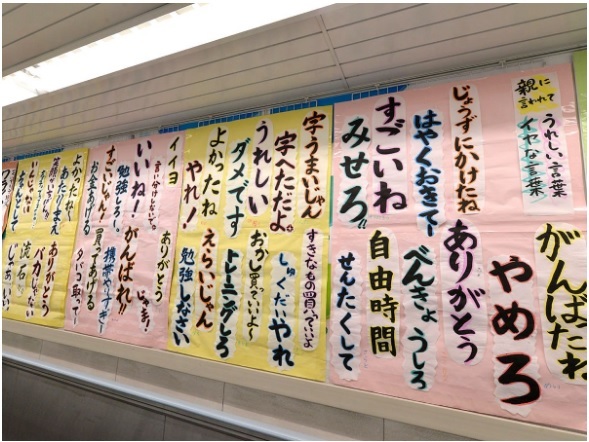 親に
言われて
うれしい言葉
イヤな言葉
がんばたね
やめろ
じょうずにかけたね
ありがとう
はやくおきてー
べんきょうしろ
すごいね
自由時間
みせろ!!
せんたくして
字、うまいじゃん
すきなもの買っていいよ
字へただよ。
しゅくだいやれ
うれしい
おかし買っていいよ〜
ダメです
トレーニングしろ
よかったね
えらいじゃん
やれ!
勉強しなさい
イイヨ
ありがとう
言い分けしないで。
じゃま!
いいね!
がんばれ!!
勉強しろー。
携帯やりすぎー
すごいじゃん!
買ってあげる
お金あげる
タバコ取ってー
よかったね
あたりまえ
ありがとう
バカじゃない
流石